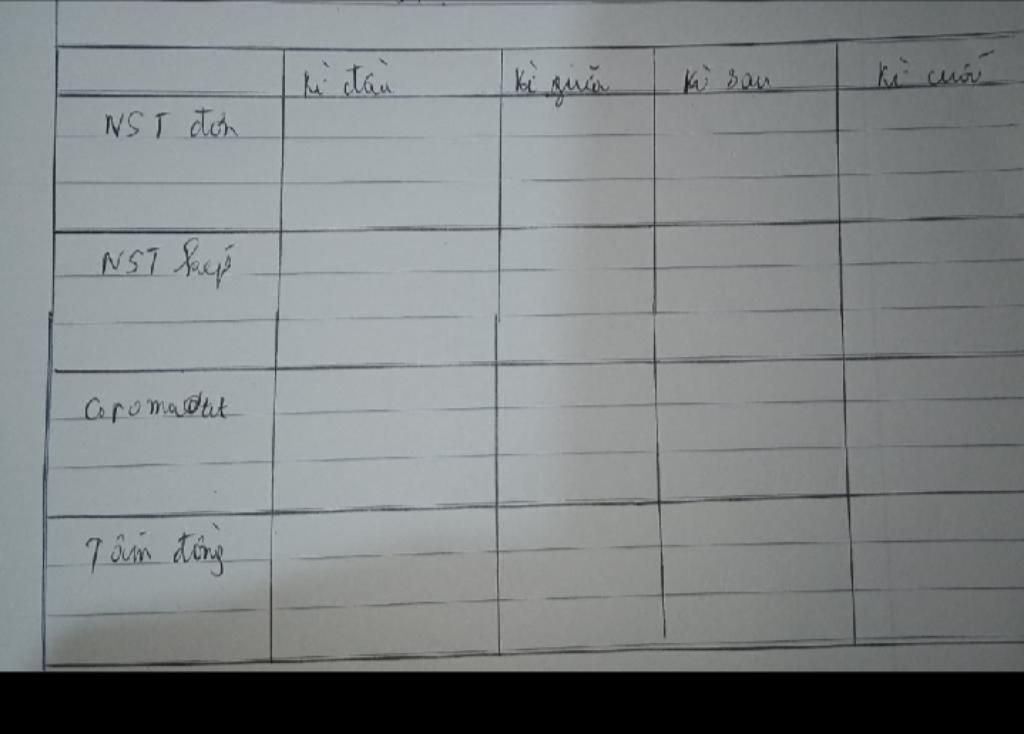 Kì đầu Kì giữa Kì sau Kì cuối
NST đơn
NST kép
Coromatit
Tâm động